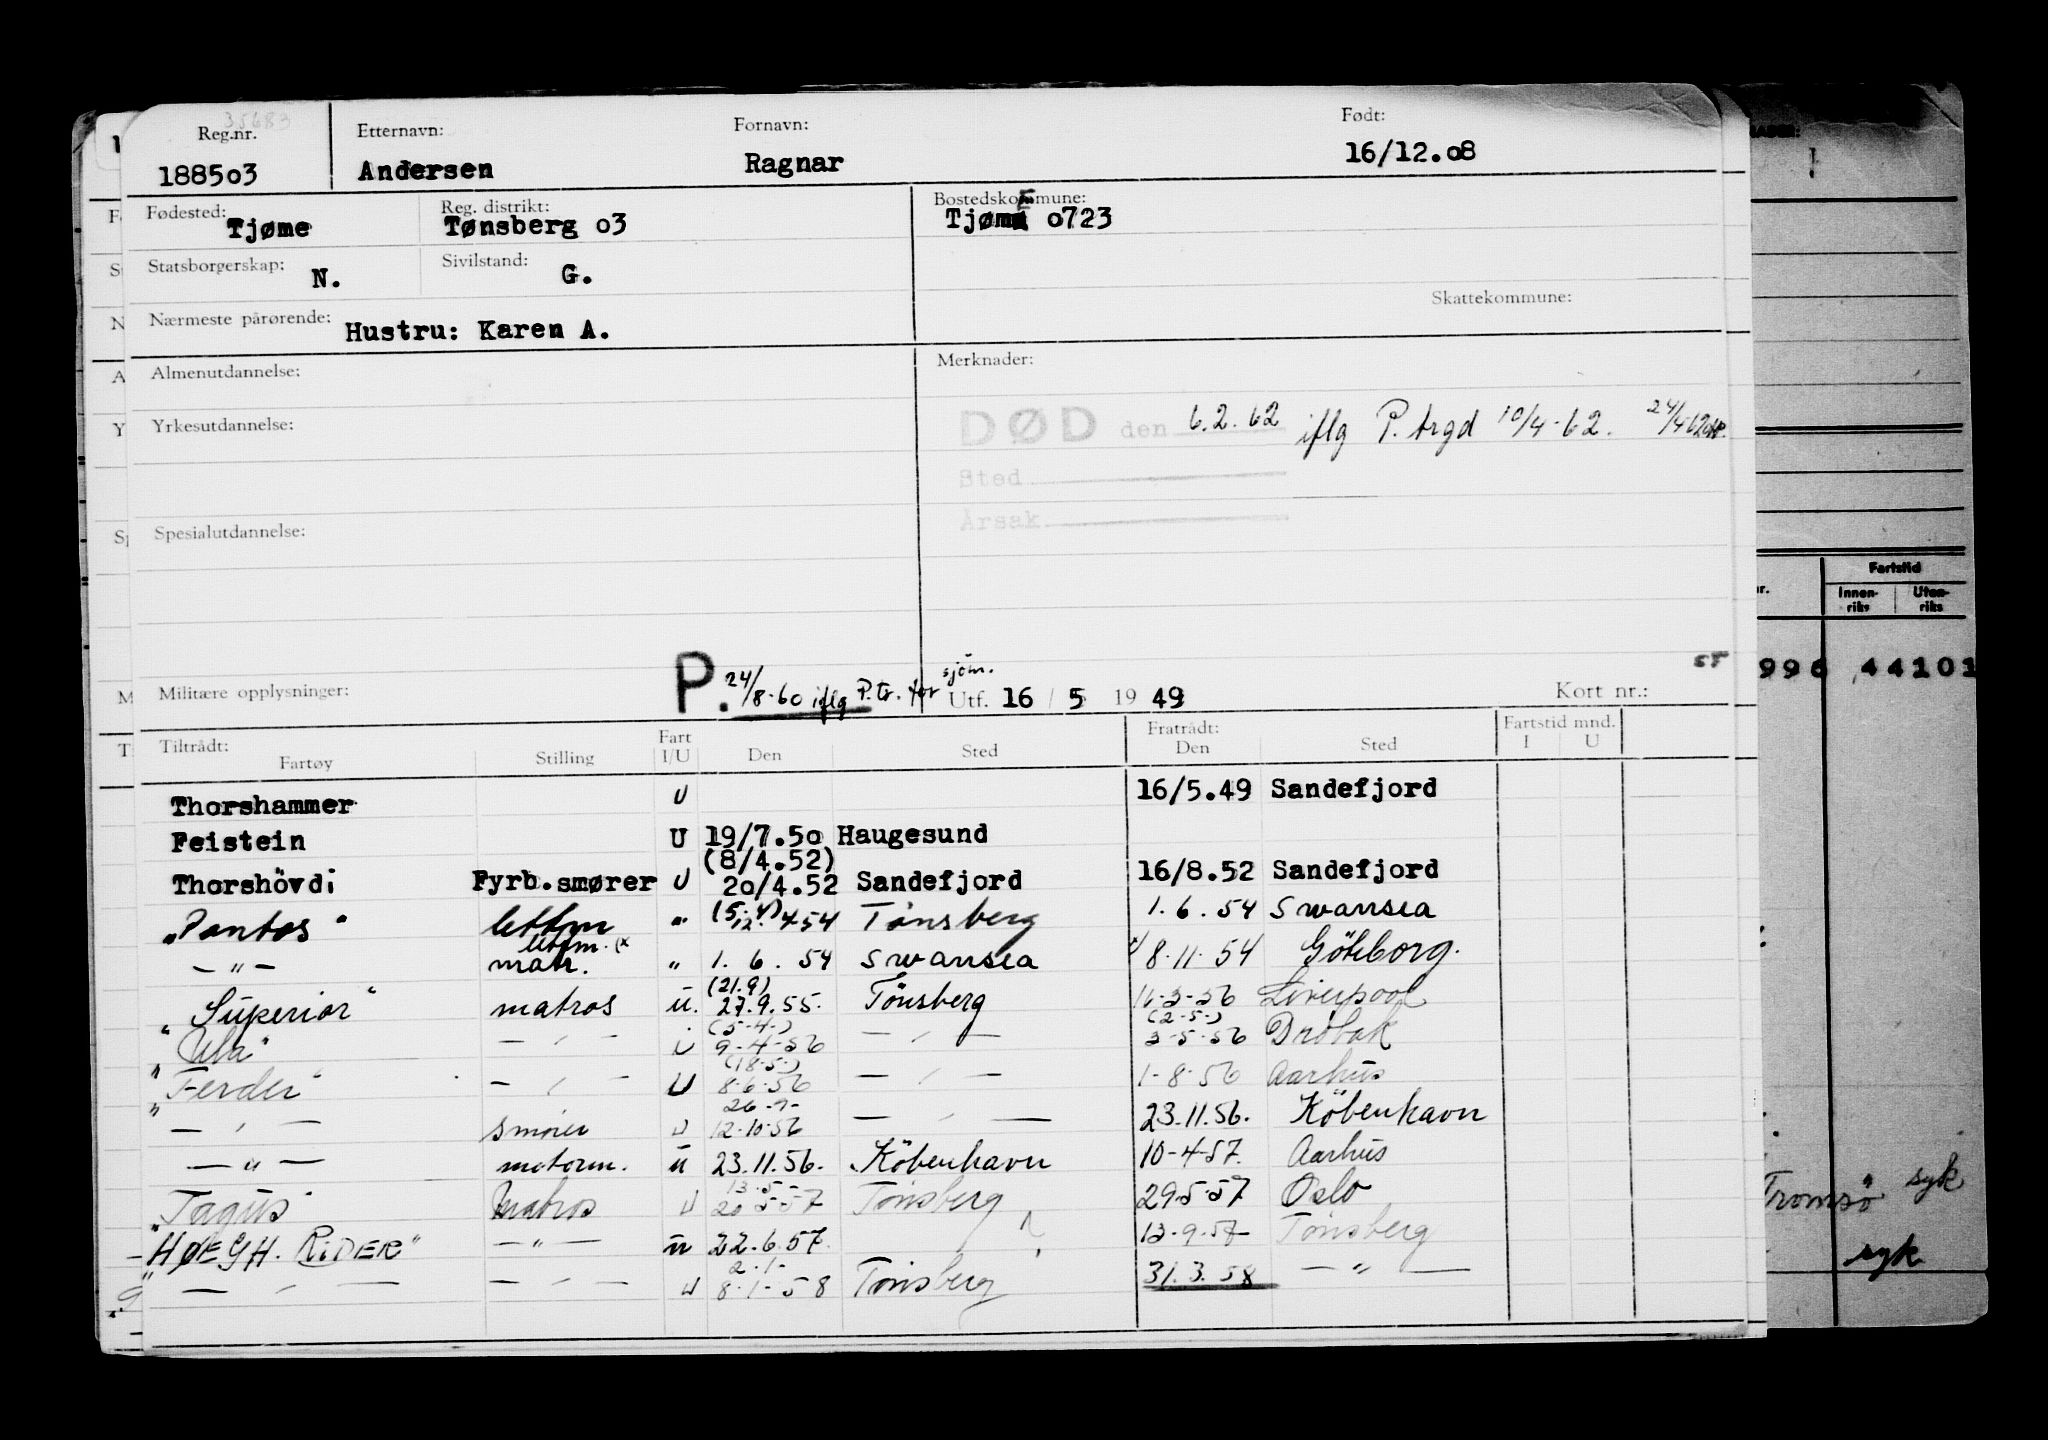 35683
Reg.nr. Etternavn: Fornavn: Født:
188503 Andersen Ragnar 16/12.08
Fødested: Tjøme Reg. distrikt: Tønsberg 03 Bostedskommune: Tjøme 0723
Statsborgerskap: N. Sivilstand: G.
Skattekommune:
Nærmeste pårørende: Hustru: Karen A.
Almenutdannelse: Merknader:
Yrkesutdannelse: DØD den 6.2.62 iflg P. trgd 10/4-62. 24/4-62
Sted
Årsak
Spesialutdannelse:
Militære opplysninger: P. 24/8-60 iflg P.tr. for sjöm. Utf. 16 / 5 19 49 Kort nr.:
Tiltrådt: Fratrådt: Fartstid mnd.
Fartøy Stilling Fart I/U Den Sted Den Sted I U
Thorshammer U 16/5.49 Sandefjord
Feistein U 19/7.50 Haugesund
(8/4.52)
Thorshövdi Fyrb.smører U 20/4.52 Sandefjord 16/8.52 Sandefjord
"Pontos" lettm " (5.4) 12.454 Tönsberg 1.6.54 Swansea
lettm. (x
— " — matr. " 1.6.54 Swansea x/ 8.11.54 Göteborg.
(21.9)
"Superior" matros u. 27.9.55. Tönsberg 16-3-56 Liverpool
(5-4-) (2-5-)
"Ula" — " — U 9-4-56 — " — 3-5-56 Drøbak
(18-5-)
"Ferder" — " — U 8-6-56 — " — 1-8-56 Aarhus
26-9-
— " — smører U 12-10-56 — " — 23.11.56. Köbenhavn
— " — motorm. u 23.11.56. Köbenhavn 10-4-57. Aarhus
13-5-
"Tagus" Matros U 20-5-57 Tönsberg 29-5-57 Oslo
"HØEGH. RIDER" — " — u 22.6.57. 13-9-57 Tönsberg
2-1-
— " — — " — U 8-1-58 Tönsberg 31.3.58 — " —
Fartstid
Innen-riks Uten-riks
55
996 44101
Tromsö syk
syk